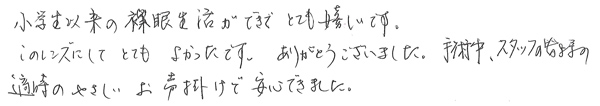 小学生以来の裸眼生活ができて とても嬉しいです。
このレンズにして とても よかったです。 ありがとうございました。 手術中、スタッフの皆さまの
適時のやさしい お声掛けで 安心できました。